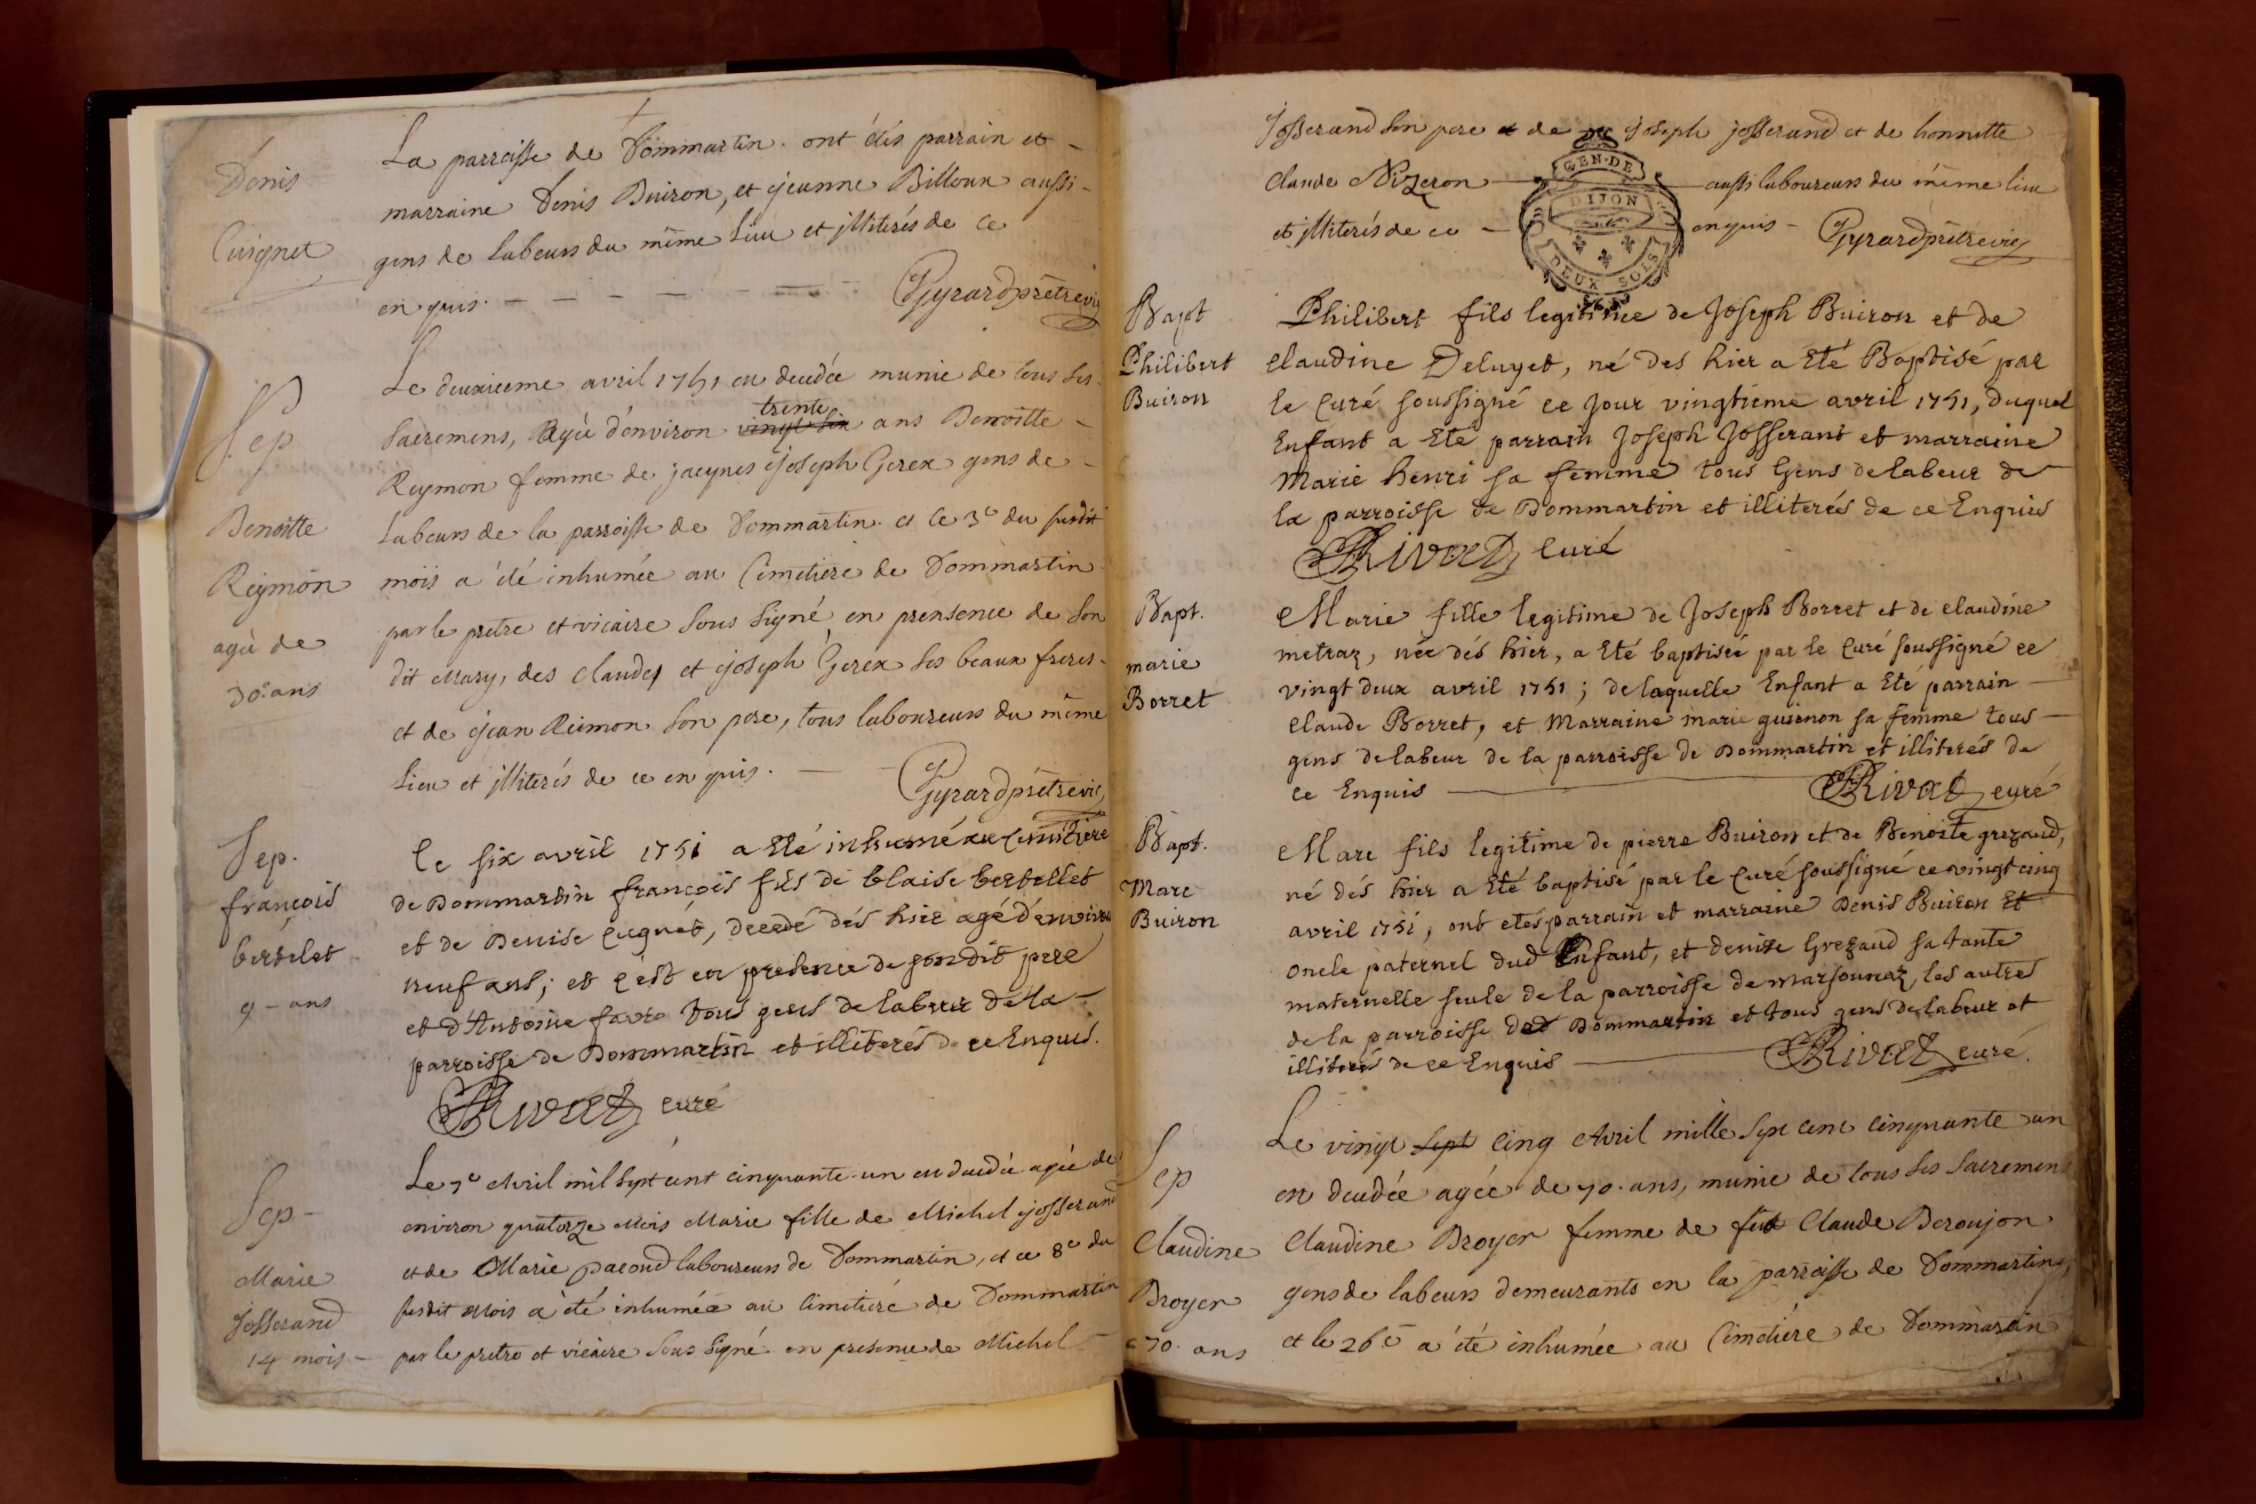 Denis
Cuignet
La parroisse de Dommartin. ont étés parrain et
marraine Denis Buiron, et jeanne Billoux aussi
gens de labeurs du même lieu et illiterés de ce
enquis. Gyrard prêtre vic
Sep
Benoitte
Reymon
agée de
30 ans
Le deuxieme avril 1751 en decedée munie de tous ses
sacremens, agée d'environ trente ans Benoitte
Reymon femme de jacques joseph Gerex gens de
labeurs de la parroisse de Dommartin. et le 3e du susdit
mois a été inhumée au Cimetiere de Dommartin
par le pretre et vicaire sous signé en prensence de son
dit mary, des claudes et joseph Gerex ses beaux freres
et de jean Reimon son pere, tous laboureurs du même
lieu et illiterés de ce enquis.
Gyrard prêtre vic
Sep.
françois
bertelet
9 - ans
Le six avril 1751 a Eté inhumé au Cimitiere
de Dommartin françois fils de blaise bertellet
et de Denise Cugnet, decedé dés hier agé d'environ
neuf ans; et c'est en presence de son dit pere
et d'Antoine favre tous gens de labeur de la
parroisse de Dommartin et illiterés de ce Enquis.
Rivat curé
Sep -
Marie
Josserand
14 mois
Le 7e Avril mil sept cent cinquante-un en decedée agée de
environ quatorze mois Marie fille de Michel josserand
et de Marie pacoud laboureurs de Dommartin, et ce 8e du
susdit mois a été inhumée au cimetiere de Dommartin
par le pretre et vicaire sous signé en presence de Michel
Josserand son pere et de joseph josserand et de honnette
claude Nizeron aussi laboureurs du même lieu
et illiterés de ce enquis - Gyrard prêtre vic
GEN. DE
DIJON
DEUX SOLS
Bapt
Philibert
Buiron
Philibert fils legitime de Joseph Buiron et de
Claudine Deluyet, né des hier a Eté Baptisé par
le Curé soussigné ce jour vingtieme avril 1751, duquel
Enfant a Eté parrain Joseph Josserand et marraine
Marie henri sa femme tous gens de labeur de
la parroisse de Dommartin et illiterés de ce Enquis
Rivat Curé
Bapt.
marie
Borret
Marie fille legitime de Joseph Borret et de claudine
metraz, née dés hier, a Eté baptisée par le Curé soussigné ce
vingt deux avril 1751; de laquelle Enfant a Eté parrain
claude Borret, et Marraine marie guienon sa femme tous
gens de labeur de la parroisse de Dommartin et illiterés de
ce Enquis Rivat curé
Bapt.
Marc
Buiron
Marc fils legitime de pierre Buiron et de Benoite grezaud,
né dés hier a Eté baptisé par le Curé soussigné ce vingt cinq
avril 1751, ont etés parrain et marraine Denis Buiron Et
oncle paternel dud Enfant, et denise Grezaud sa tante
maternelle seule de la parroisse de marsonnaz, les autres
de la parroisse de Dommartin et tous gens de labeur et
illiterés de ce Enquis Rivat curé.
Sep
Claudine
Broyer
70 ans
Le vingt sept cinq Avril mille sept cent cinquante un
en decedée agée de 70 ans, munie de tous ses sacremens
Claudine Broyer femme de fut Claude Beroujon
gens de labeurs demeurants en la parroisse de Dommartin,
et le 26e a été inhumée au Cimétiére de Dommartin